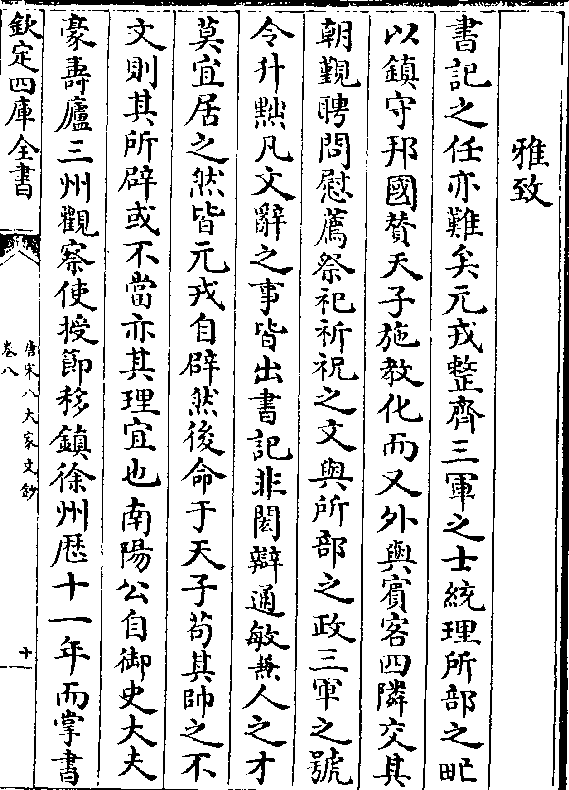 雅致
書記之任亦難矣元戎整齊三軍之士統理所部之甿
以鎮守邦國賛天子施教化而又外與賓客四隣交其
朝覲聘問慰薦祭祀祈祝之文與所部之政三軍之號
令升黜凡文辭之事皆出書記非閎辯通敏兼人之才
莫宜居之然皆元戎自辟然後命于天子苟其帥之不
文則其所辟或不當亦其理宜也南陽公自御史大夫
豪壽廬三州觀察使授節移鎮徐州歴十一年而掌書
欽定四庫全書
唐宋八大家文鈔
卷八
十